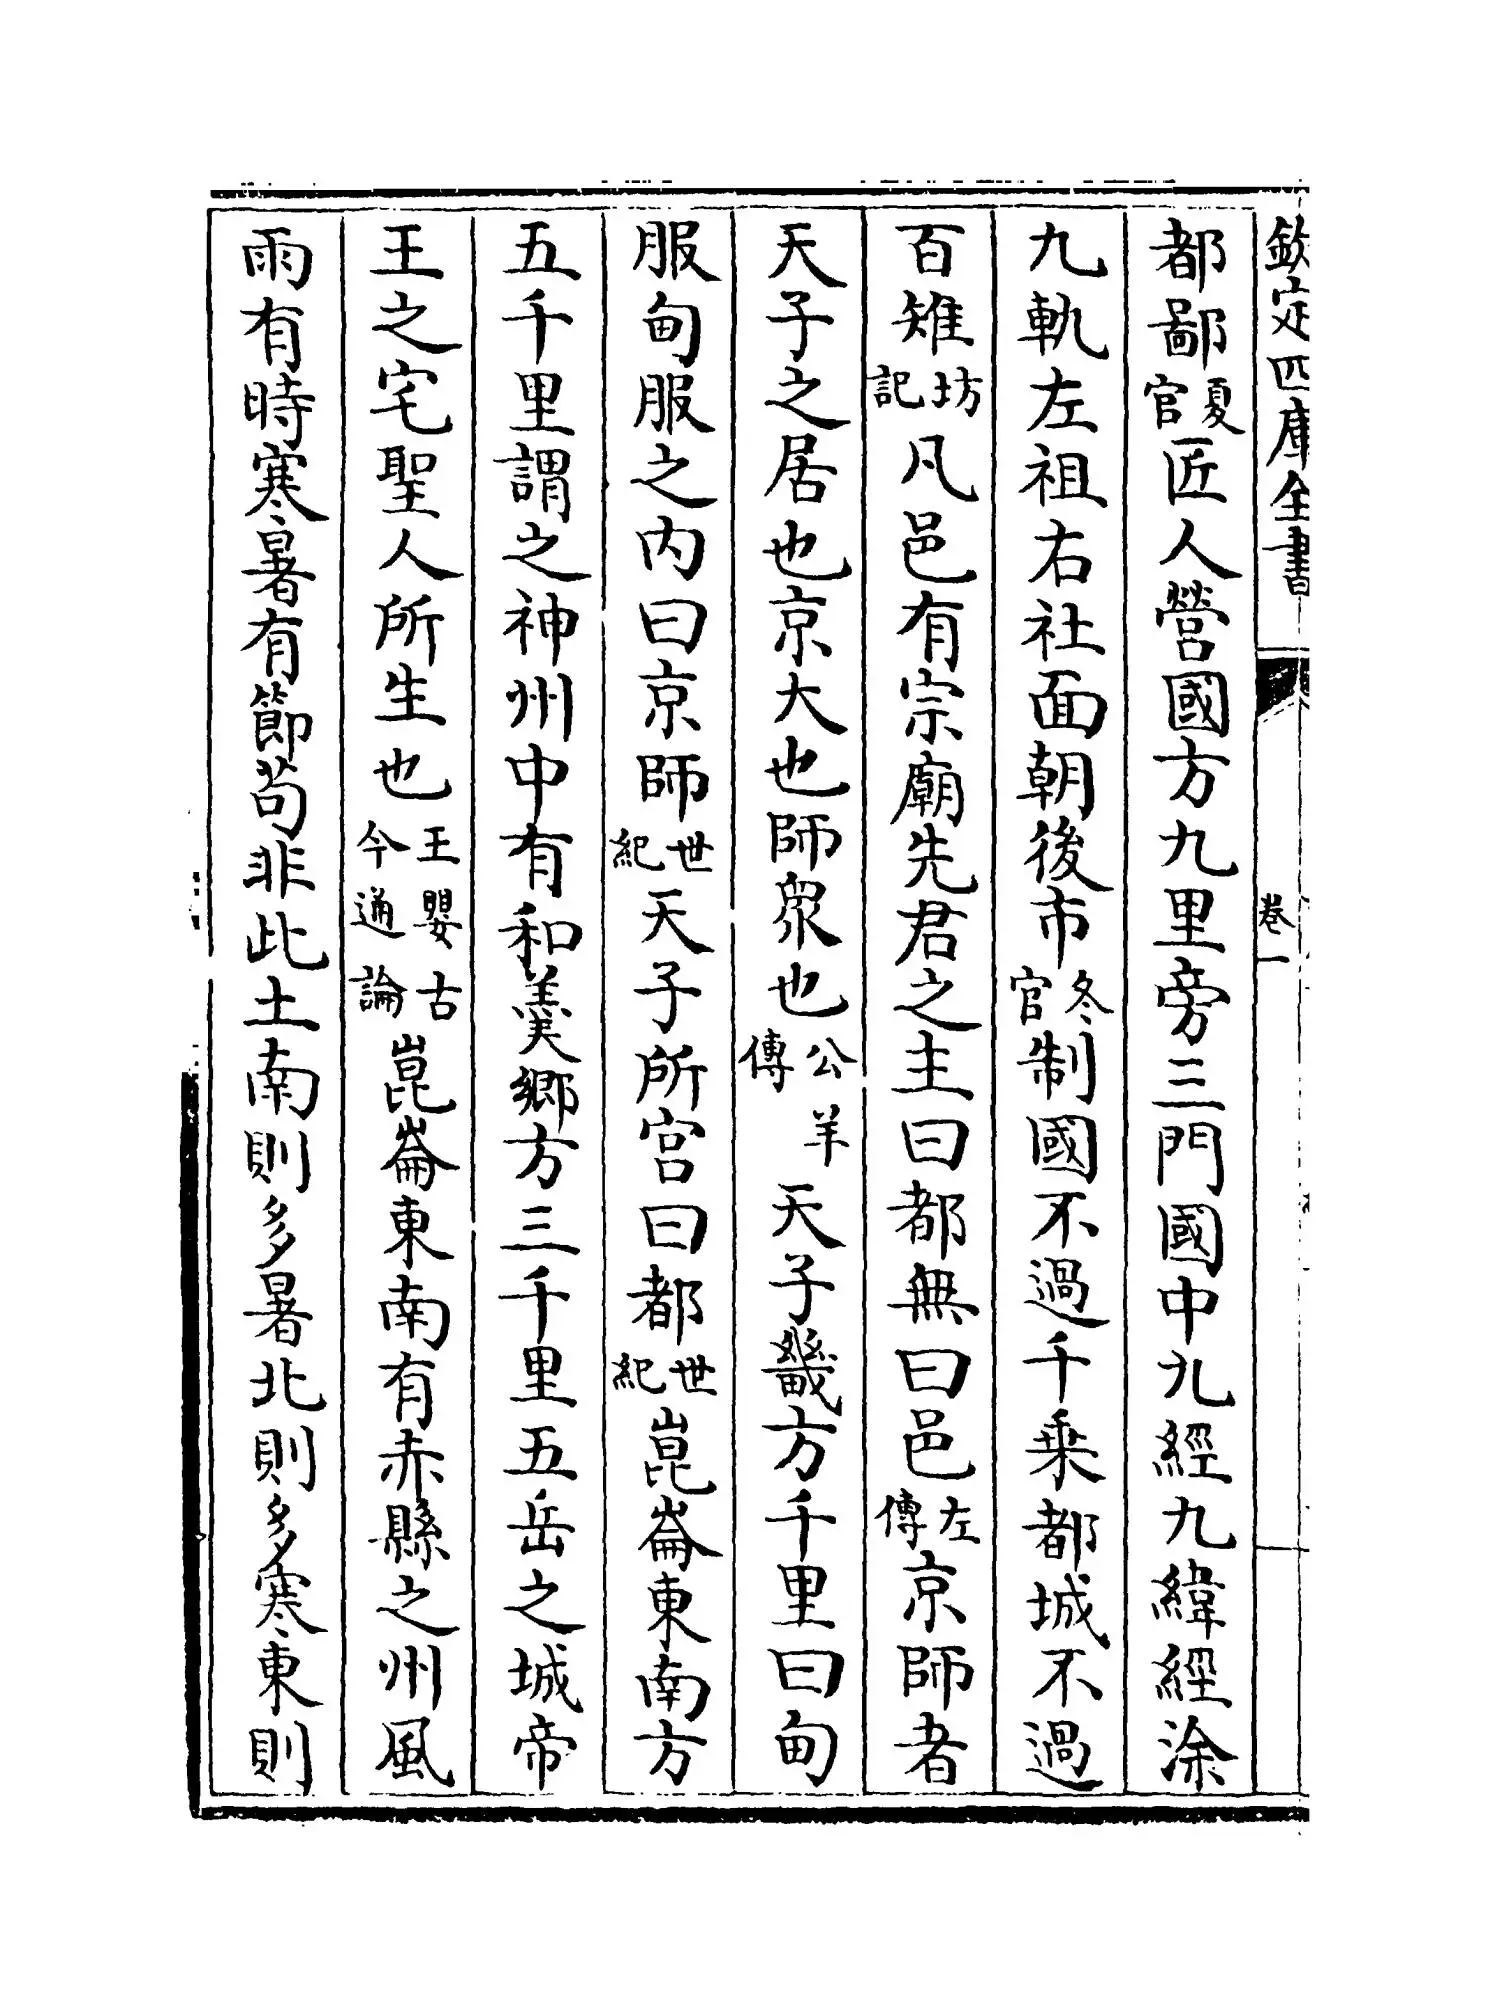 欽定四庫全書
卷一
都鄙夏官匠人營國方九里旁三門國中九經九緯經涂
九軌左祖右社面朝後市冬官制國不過千乗都城不過
百雉坊記凡邑有宗廟先君之主曰都無曰邑左傳京師者
天子之居也京大也師衆也公羊傳天子畿方千里曰甸
服甸服之内曰京師世紀天子所宫曰都世紀崑崙東南方
五千里謂之神州中有和羮郷方三千里五岳之城帝
王之宅聖人所生也王嬰古今通論崑崙東南有赤縣之州風
雨有時寒暑有節茍非此土南則多暑北則多寒東則